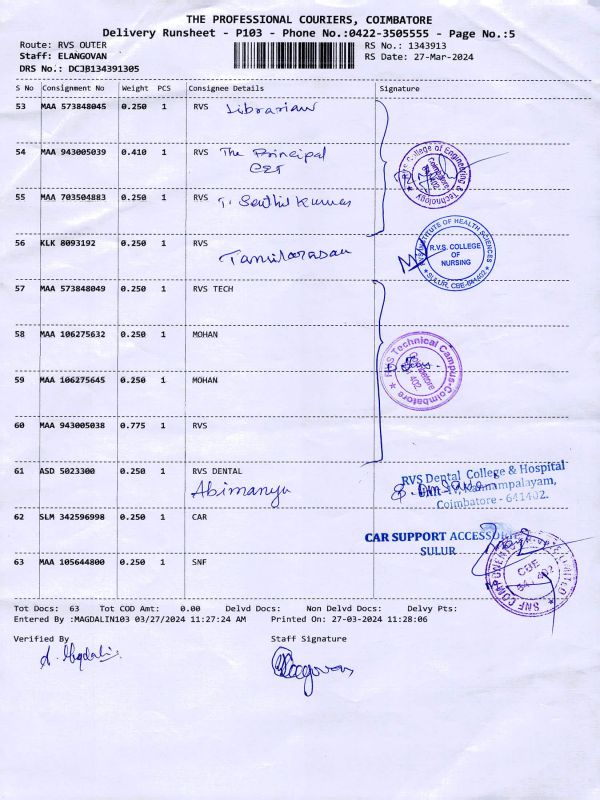 THE PROFESSIONAL COURIERS, COIMBATORE
Delivery Runsheet - P103 - Phone No.:0422-3505555 - Page No.:5
Route: RVS OUTER RS No.: 1343913
Staff: ELANGOVAN RS Date: 27-Mar-2024
DRS No.: DCJB134391305
S No Consignment No Weight PCS Consignee Details Signature
53 MAA 573848045 0.250 1 RVS Librarian
54 MAA 943005039 0.410 1 RVS The Principal
CET
RVS College of Engineering & Technology
Coimbatore
641 402
55 MAA 703504883 0.250 1 RVS T. Senthil Kumar
56 KLK 8093192 0.250 1 RVS
Tamilarasan
RVS INSTITUTE OF HEALTH SCIENCES
R.V.S. COLLEGE
OF
NURSING
SULUR, CBE-641402
57 MAA 573848049 0.250 1 RVS TECH
58 MAA 106275632 0.250 1 MOHAN
RVS Technical Campus-Coimbatore
Coimbatore
641 402.
59 MAA 106275645 0.250 1 MOHAN
60 MAA 943005038 0.775 1 RVS
61 ASD 5023300 0.250 1 RVS DENTAL
Abimanyu
RVS Dental College & Hospital
Kannampalayam,
Coimbatore - 641402.
62 SLM 342596998 0.250 1 CAR
CAR SUPPORT ACCESSORIES
SULUR
63 MAA 105644800 0.250 1 SNF
SNF COMPONENTS LIMITED
CBE
641 402
Tot Docs: 63 Tot COD Amt: 0.00 Delvd Docs: Non Delvd Docs: Delvy Pts:
Entered By :MAGDALIN103 03/27/2024 11:27:24 AM Printed On: 27-03-2024 11:28:06
Verified By Staff Signature